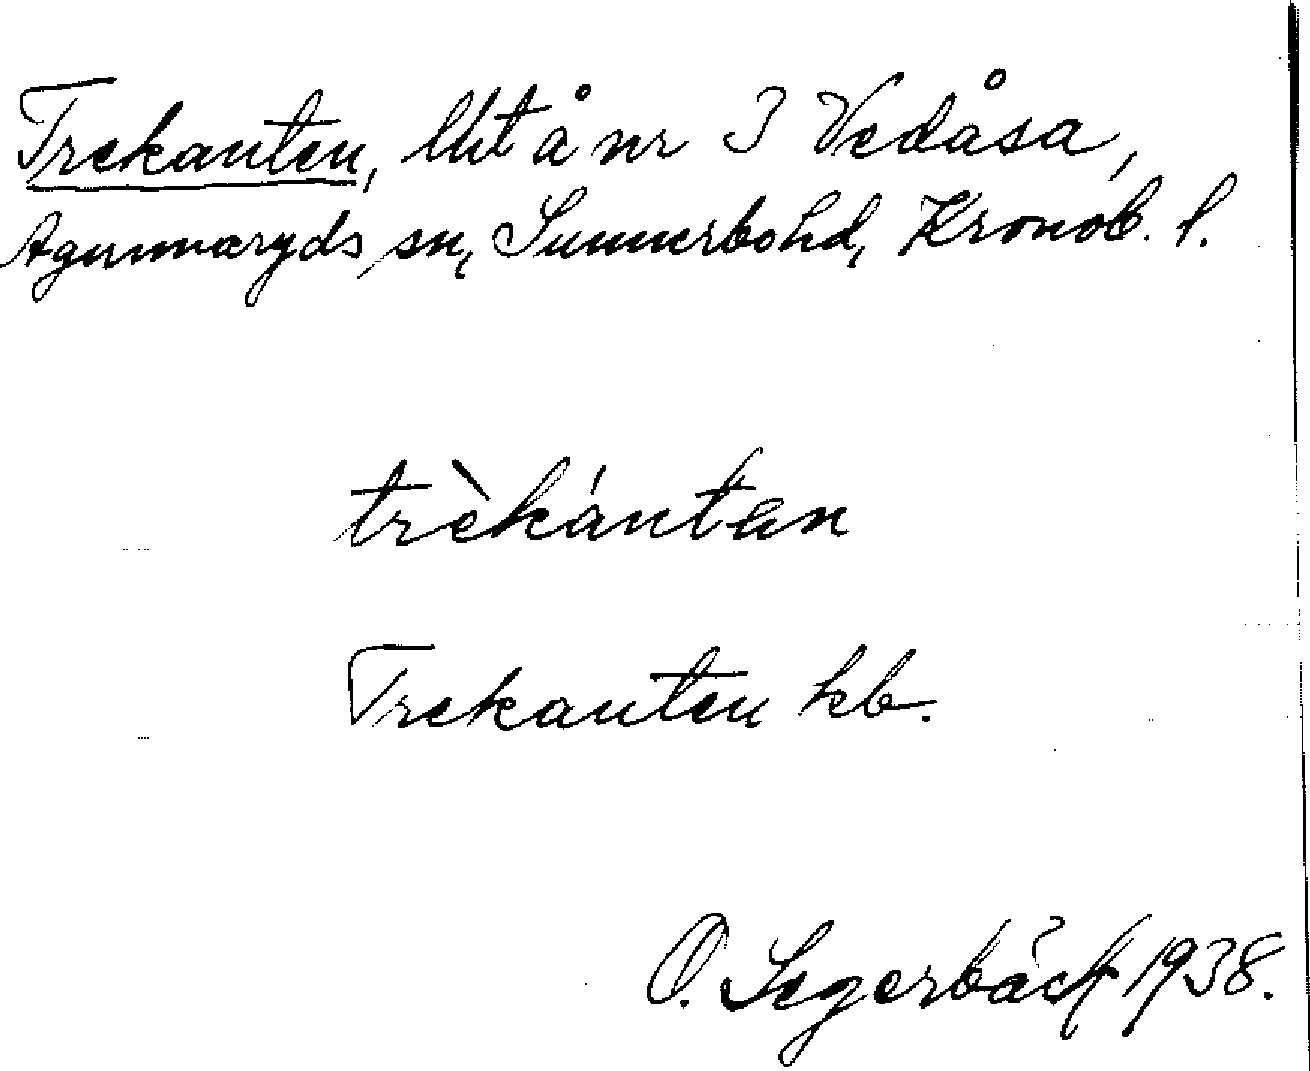 Trekanten, lht å nr 3 Vedåsa,
Agunnaryds sn, Sunnerbo hd, Kronob. l.
trèkántən
Trekanten kb.
O. Segerbäck 1938.